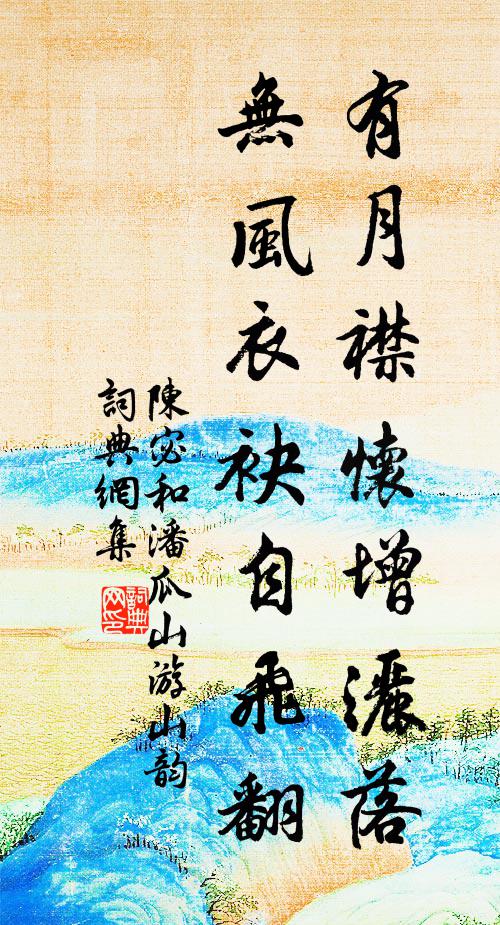 有月襟懷增灑落
無風衣袂自飛翻
陳宓和潘瓜山游山韵
詞典網集
詞典
网印